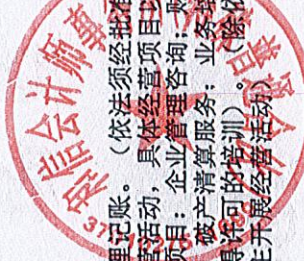 理记账。（依法须经批准
营活动，具体经营项目以
项目：企业管理咨询；
破产清算服务；业务培
得许可的培训）。（除依
主开展经营活动）
信会计师事